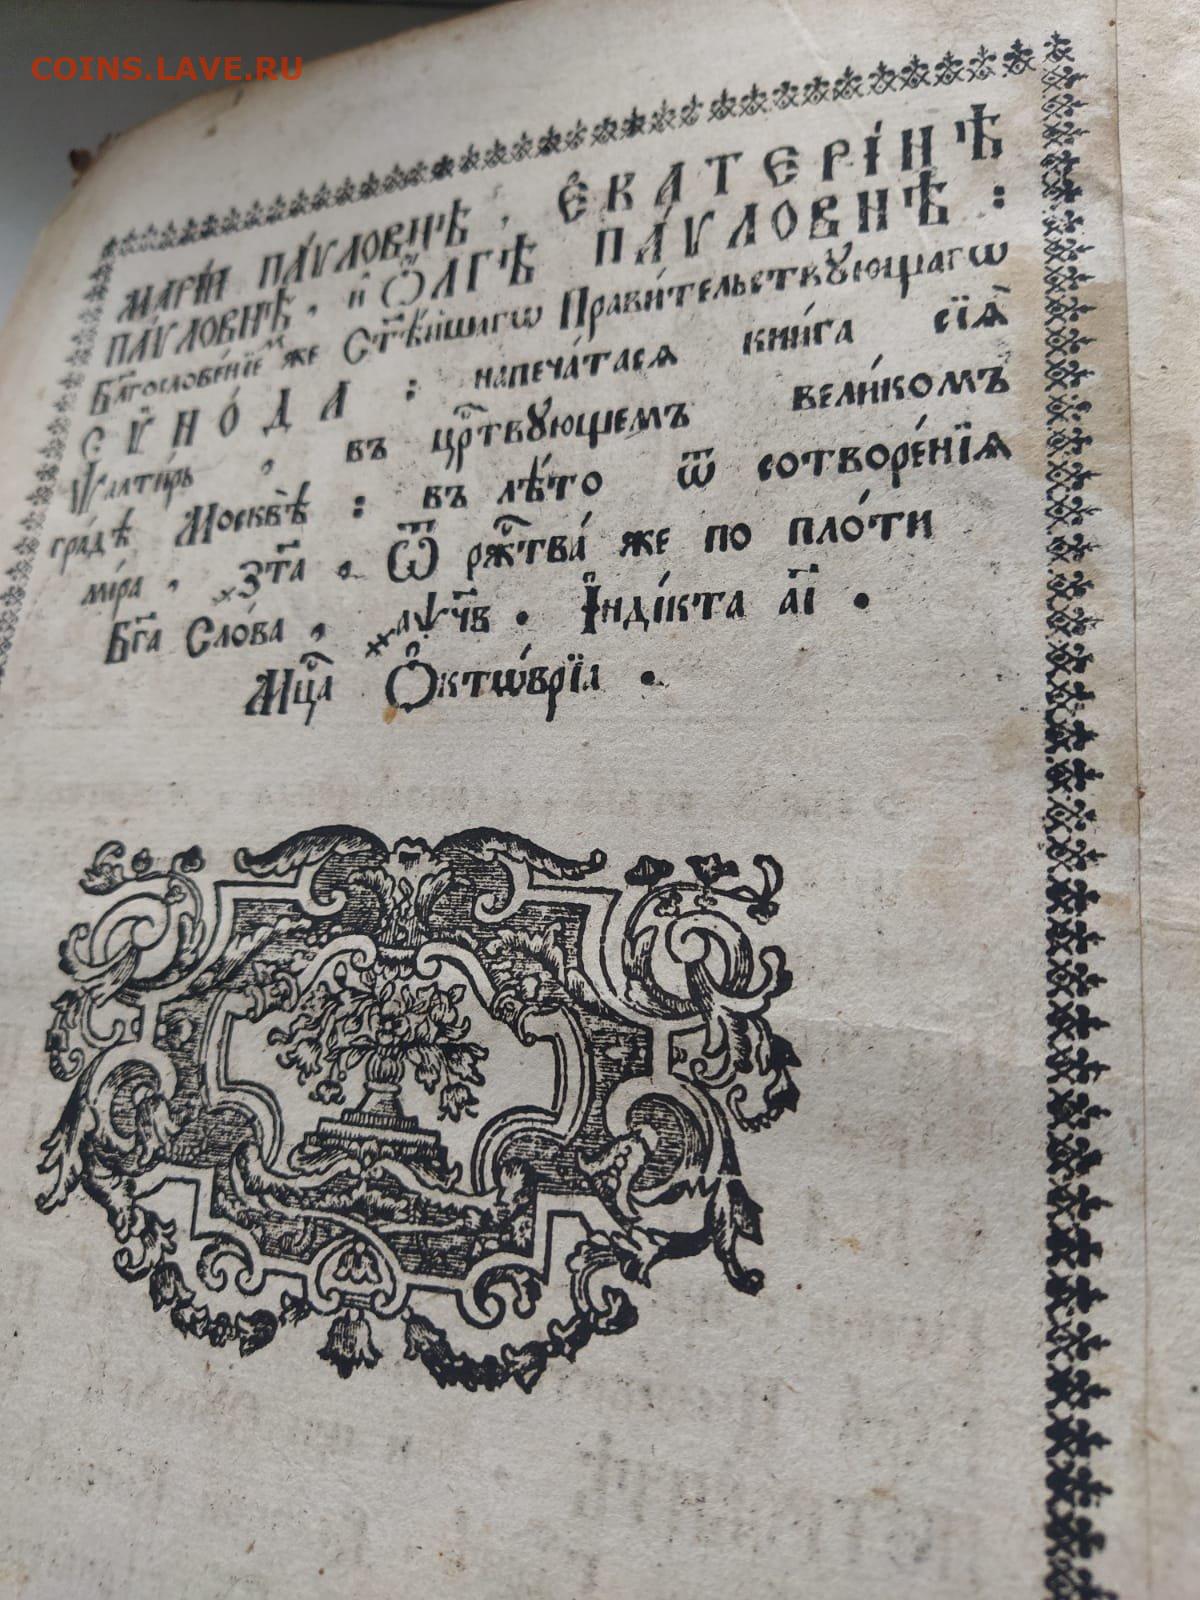 COINS.LAVE.RU
МАРІИ ПА́ѴЛОВНѢ, Е҆КАТЕРІ́НѢ
ПА́ѴЛОВНѢ, и҆ Ѻ҆́ЛГѢ ПА́ѴЛОВНѢ:
Бл҃гослове́нїемъ же Ст҃ѣ́йшагѡ Прави́тельствꙋющагѡ
СѴНО́ДА: напеча́тасѧ кни́га сїѧ̀
Ѱалти́рь, въ црⷭ҇твꙋющемъ вели́комъ
гра́дѣ Москвѣ̀: въ лѣ́то ѿ сотворе́нїѧ
мі́ра, ҂зт҃а, Ѿ ржⷭ҇тва́ же по пло́ти
Бг҃а Сло́ва, ҂аѱч҃в. І҆ндікта а҃і.
Мцⷭ҇а Ѻ҆ктѡ́врїа.